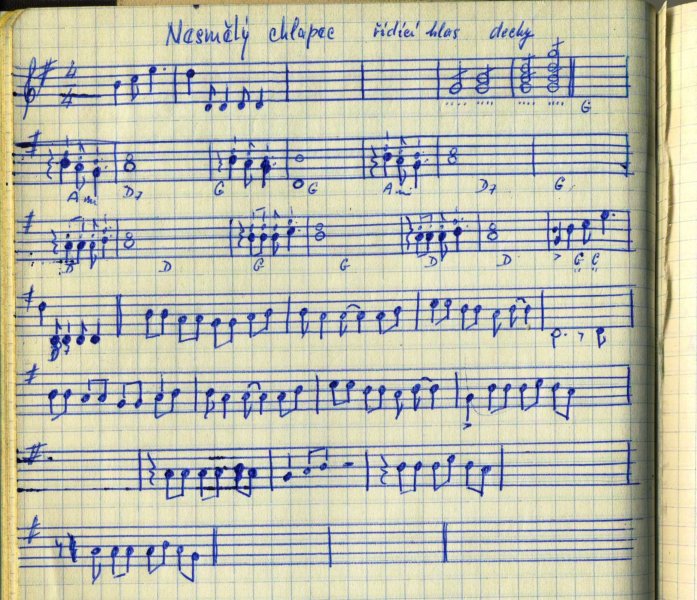 Nesmělý chlapec řídící hlas dechy
4
4
G
Ami D7 G G Ami D7 G
D D G G D D G C
D7